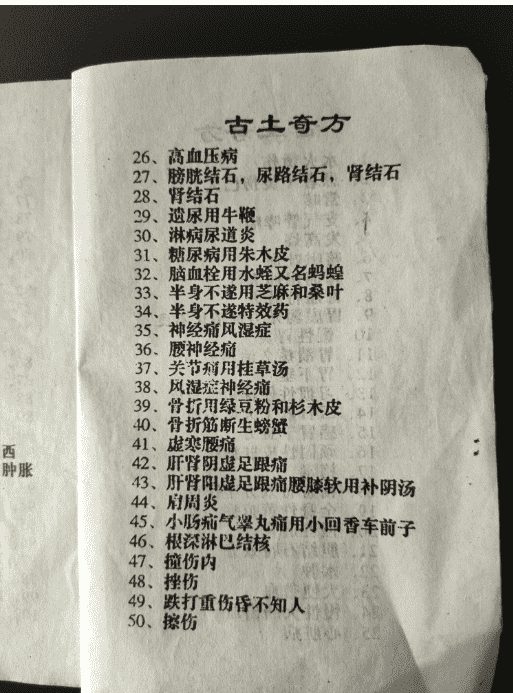 西
肿胀
古土奇方
26、高血压病
27、膀胱结石，尿路结石，肾结石
28、肾结石
29、遗尿用牛鞭
30、淋病尿道炎
31、糖尿病用朱木皮
32、脑血栓用水蛭又名蚂蝗
33、半身不遂用芝麻和桑叶
34、半身不遂特效药
35、神经痛风湿症
36、腰神经痛
37、关节痛用挂草汤
38、风湿症神经痛
39、骨折用绿豆粉和杉木皮
40、骨折筋断生螃蟹
41、虚寒腰痛
42、肝肾阴虚足跟痛
43、肝肾阳虚足跟痛腰膝软用补阴汤
44、肩周炎
45、小肠疝气睾丸痛用小回香车前子
46、根深淋巴结核
47、撞伤内
48、挫伤
49、跌打重伤昏不知人
50、擦伤